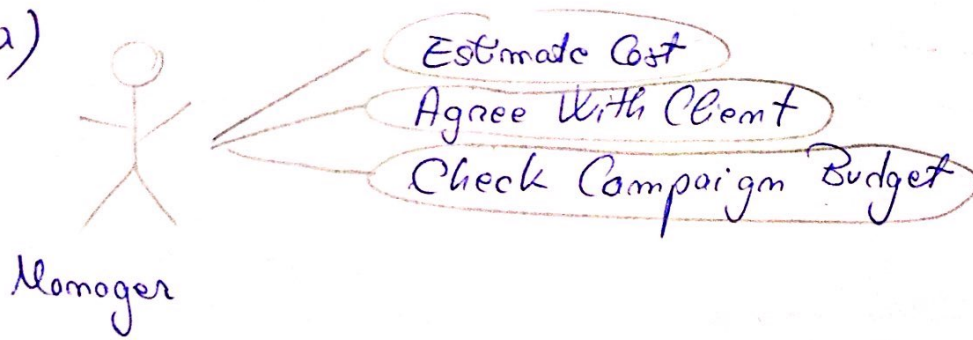 a)
Estimate Cost
Agree With Client
Check Campaign Budget
Manager